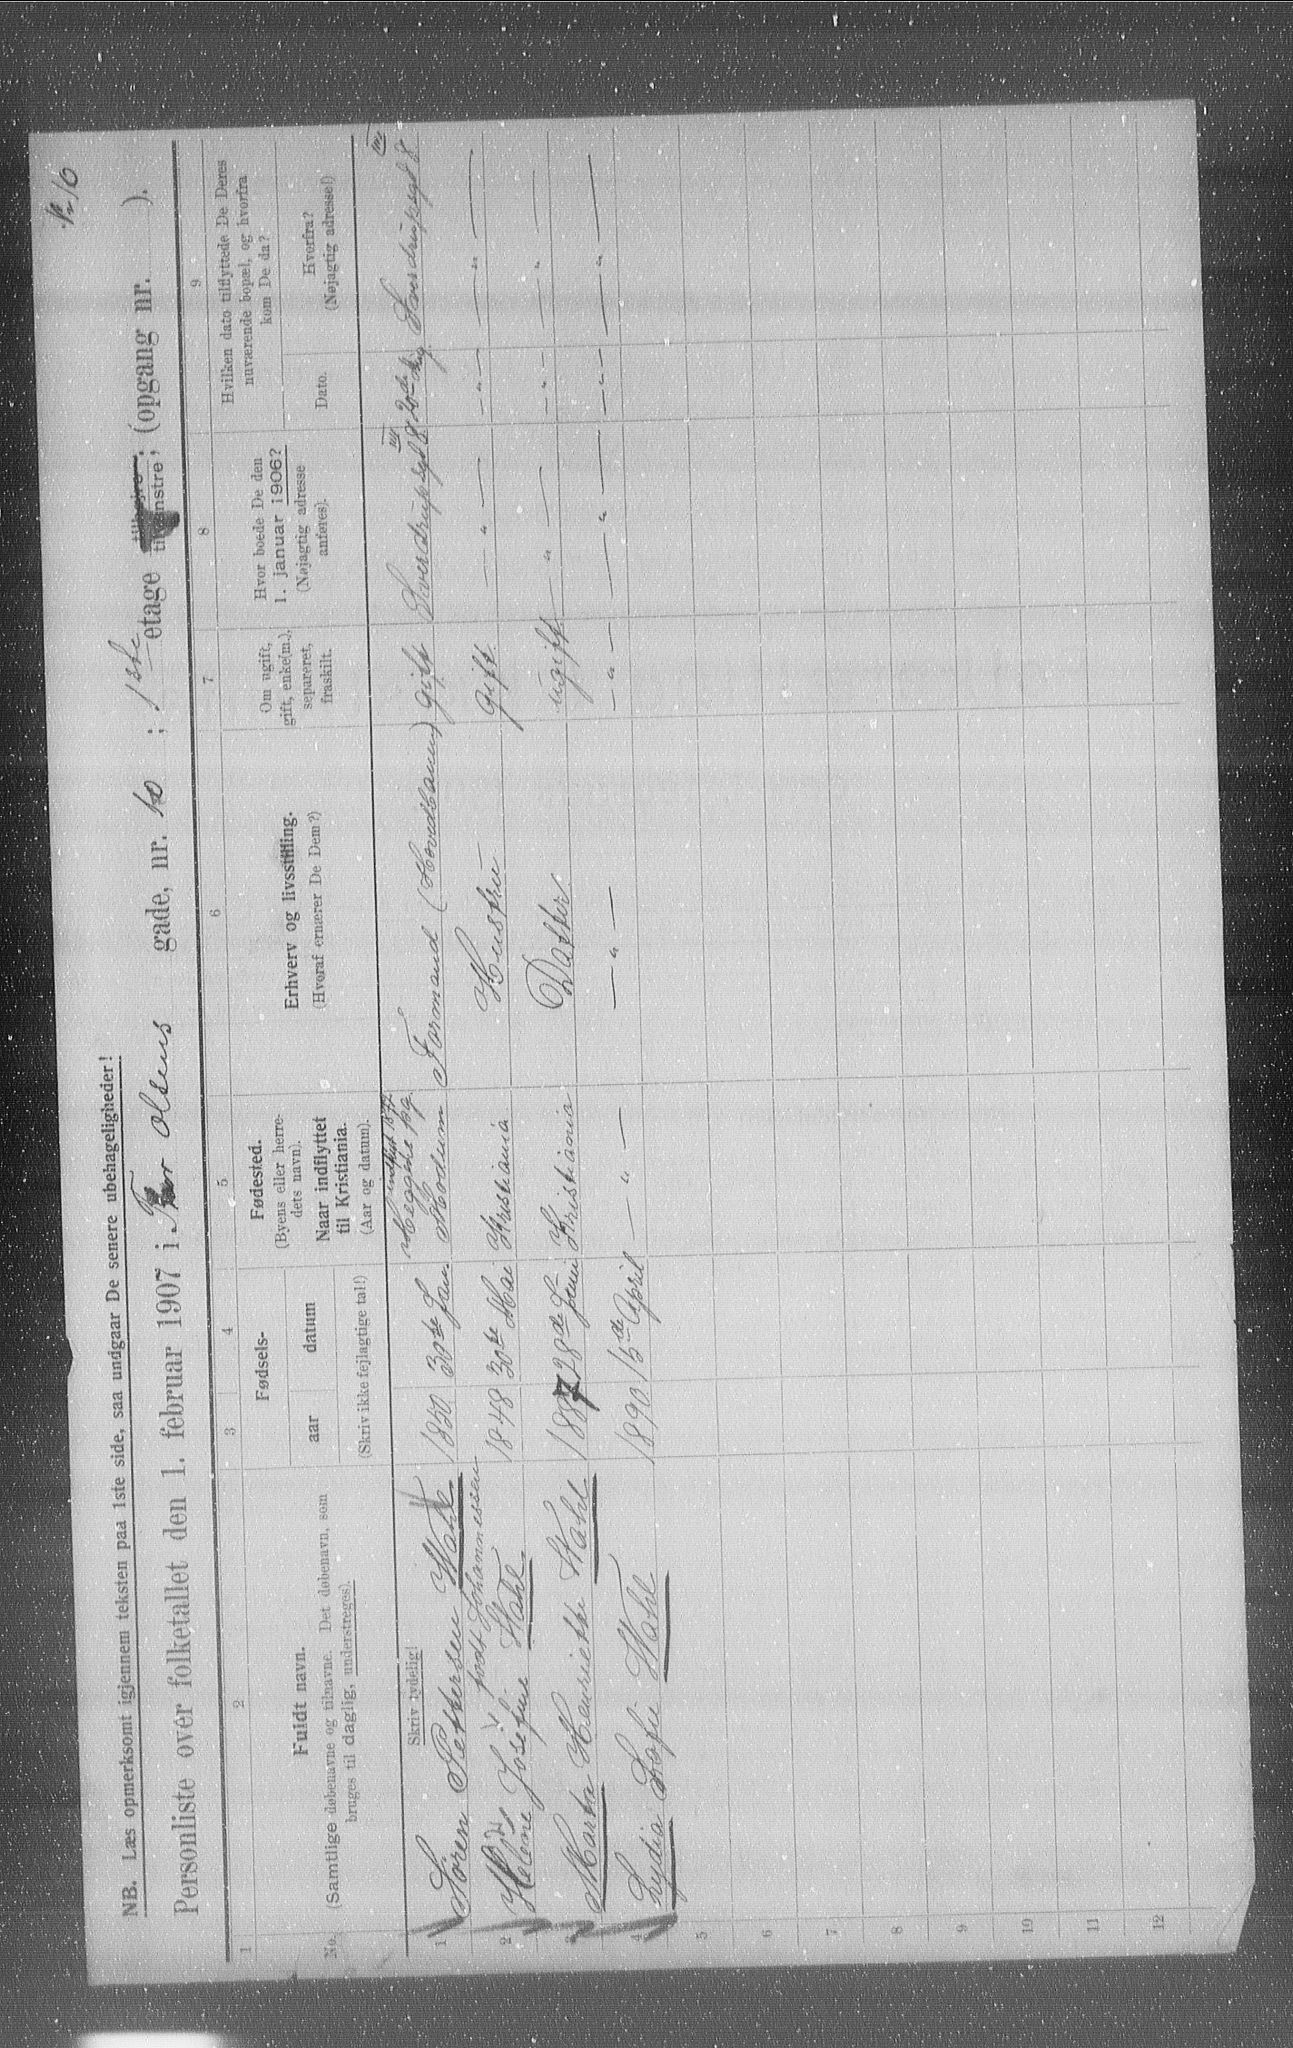 № 10
NB. Læs opmerksomt igjennem teksten paa 1ste side, saa undgaar De senere ubehageligheder!
Personliste over folketallet den 1. februar 1907 i Tor Olsens gade, nr. 10; 1ste etage tilhøjre, tilvenstre, (opgang nr. ).
1 2 3 4 5 6 7 8 9
No.
Fuldt navn.
(Samtlige døbenavne og tilnavne. Det døbenavn, som
bruges til daglig, understreges).
Fødsels-
aar datum
(Skriv ikke fejlagtige tal!)
Fødested.
(Byens eller herre-
dets navn).
Naar indflyttet
til Kristiania.
(Aar og datum).
Erhverv og livsstilling.
(Hvoraf ernærer De Dem?)
Om ugift,
gift, enke(m.),
separeret,
fraskilt.
Hvor boede De den
1. januar 1906?
(Nøjagtig adresse
anføres).
Hvilken dato tilflyttede De Deres
nuværende bopæl, og hvorfra
kom De da?
Dato.
Hvorfra?
(Nøjagtig adresse!)
Skriv tydelig!
indflyt 1877
1 Søren Pettersen Wahl. 1850 30te Jan. Modum Formand (Hovedbanen) gift Sverdrupsgd 8 III 20de Aug. Sverdrupsgd 8 III
født Johannessen
2 Helene Josefine Wahl. 1848 30te Mai Kristiania Hustru gift. — " — — " — — " —
3 Marta Henriette Wahl 1887 28de Juni Kristiania Datter ugift — " — — " — — " —
4 Lydia Sofie Wahl 1890 15de April — " — — " — — " — — " — — " — — " —
5
6
7
8
9
10
11
12